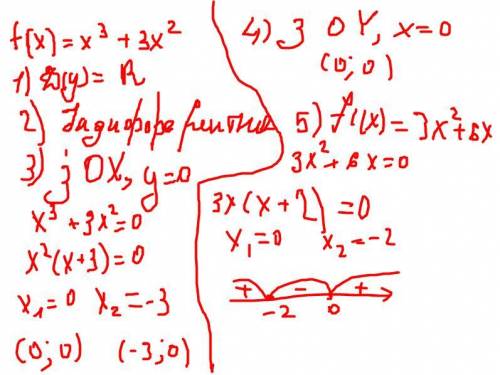 f(x) = x³ + 3x²
1) D(y) = R
2)
3) З OX, y=0
x³ + 3x² = 0
x²(x+3) = 0
x₁=0 x₂=-3
(0;0) (-3;0)
4) З OY, x=0
(0;0)
5) f'(x) = 3x²+6x
3x²+6x=0
3x(x+2)=0
x₁=0 x₂=-2
+ - +
-2 0